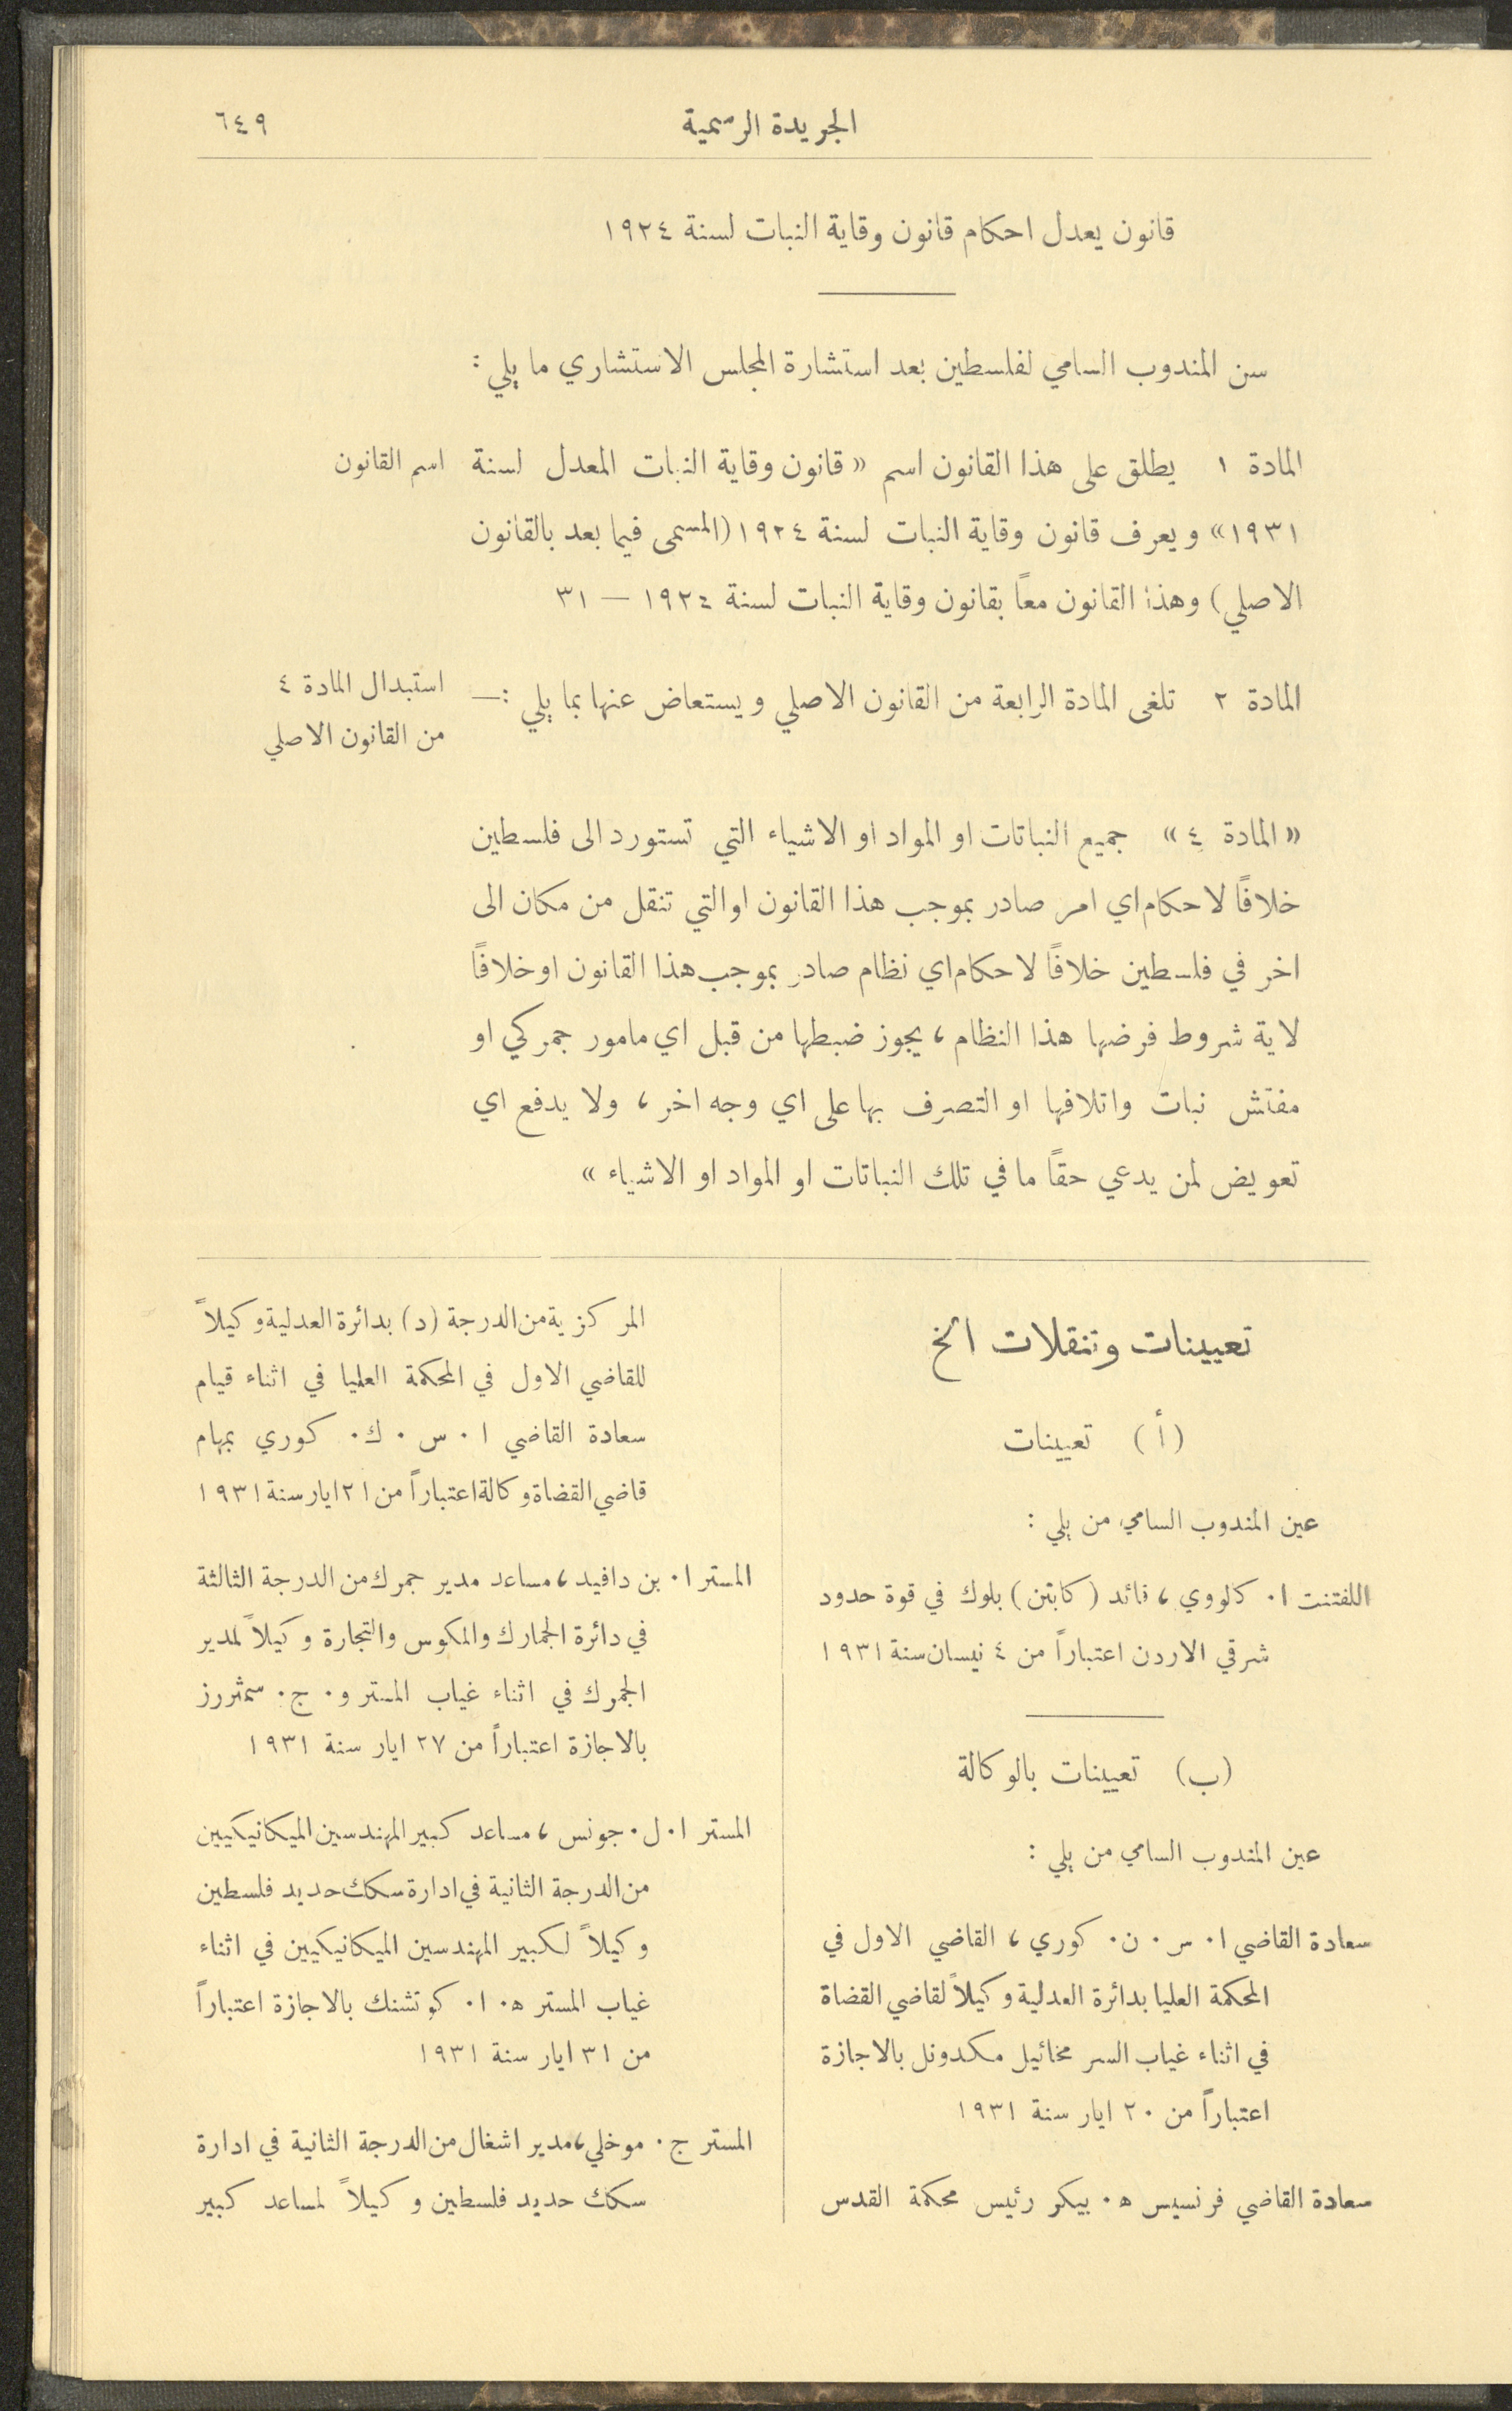 الجريدة الرسمية
٦٤٩
قانون يعدل احكام قانون وقاية النبات لسنة ١٩٢٤
سن المندوب السامي لفلسطين بعد استشارة المجلس الاستشاري ما يلي :
المادة ١ يطلق على هذا القانون اسم « قانون وقاية النبات المعدل لسنة
اسم القانون
١٩٣١» ويعرف قانون وقاية النبات لسنة ١٩٢٤ (المسمى فيما بعد بالقانون
الاصلي) وهذا القانون معاً بقانون وقاية النبات لسنة ١٩٢٤ — ٣١
المادة ٢ تلغى المادة الرابعة من القانون الاصلي ويستعاض عنها بما يلي :—
استبدال المادة ٤
من القانون الاصلي
« المادة ٤ » جميع النباتات او المواد او الاشياء التي تستورد الى فلسطين
خلافاً لاحكام اي امر صادر بموجب هذا القانون او التي تنقل من مكان الى
اخر في فلسطين خلافاً لاحكام اي نظام صادر بموجب هذا القانون او خلافاً
لاية شروط فرضها هذا النظام ، يجوز ضبطها من قبل اي مامور جمركي او
مفتش نبات واتلافها او التصرف بها على اي وجه اخر ، ولا يدفع اي
تعويض لمن يدعي حقاً ما في تلك النباتات او المواد او الاشياء »
تعيينات وتنقلات الخ
(أ) تعيينات
عين المندوب السامي من يلي :
اللفتنت ا٠ كالووي ، قائد (كابتن) بلوك في قوة حدود
شرقي الاردن اعتباراً من ٤ نيسان سنة ١٩٣١
(ب) تعيينات بالوكالة
عين المندوب السامي من يلي :
سعادة القاضي ا٠ س٠ ن٠ كوري ، القاضي الاول في
المحكمة العليا بدائرة العدلية وكيلاً لقاضي القضاة
في اثناء غياب السر مخائيل مكدونل بالاجازة
اعتباراً من ٢٠ ايار سنة ١٩٣١
سعادة القاضي فرنسيس ه٠ بيكر رئيس محكمة القدس
المركزية من الدرجة (د) بدائرة العدلية وكيلاً
للقاضي الاول في المحكمة العليا في اثناء قيام
سعادة القاضي ا٠ س٠ ك٠ كوري بمهام
قاضي القضاة وكالة اعتباراً من ٢١ ايار سنة ١٩٣١
المستر ا٠ بن دافيد ، مساعد مدير جمرك من الدرجة الثالثة
في دائرة الجمارك والمكوس والتجارة وكيلاً لمدير
الجمرك في اثناء غياب المستر و٠ ج٠ سمثررز
بالاجازة اعتباراً من ٢٧ ايار سنة ١٩٣١
المستر ا٠ ل٠ جونس ، مساعد كبير المهندسين الميكانيكيين
من الدرجة الثانية في ادارة سكك حديد فلسطين
وكيلاً لكبير المهندسين الميكانيكيين في اثناء
غياب المستر ه٠ ا٠ كوتشنك بالاجازة اعتباراً
من ٣١ ايار سنة ١٩٣١
المستر ج٠ موخلي ، مدير اشغال من الدرجة الثانية في ادارة
سكك حديد فلسطين وكيلاً لمساعد كبير